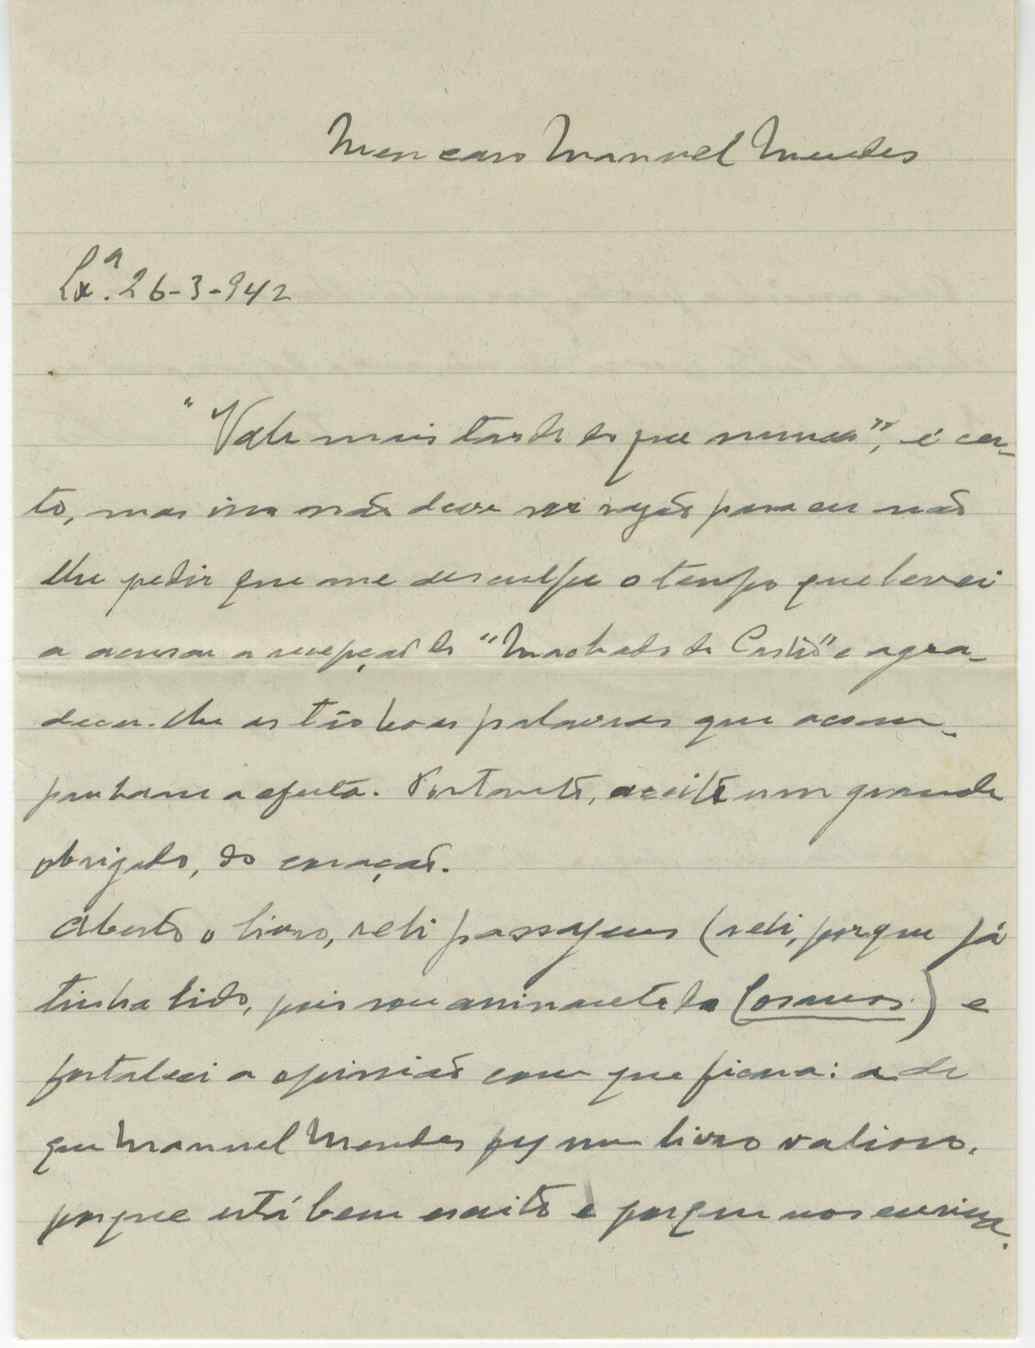 Meu caro Manuel Mendes
Lxª. 26-3-942
"Vale mais tarde do que nunca", é cer-
to, mas isso não deve ser razão para eu não
lhe pedir que me desculpe o tempo que levei
a acusar a recepção do "Machado de Castro" e agra-
decer-lhe as tão boas palavras que acom-
panham a oferta. Portanto, aceite um grande
obrigado, do coração.
Aberto o livro, reli passagens (reli, porque já
tinha lido, pois sou assinante da Cosmos.) e
fortaleci a opinião com que ficara: a de
que Manuel Mendes fez um livro valioso,
porque está bem escrito e porque nos ensina.